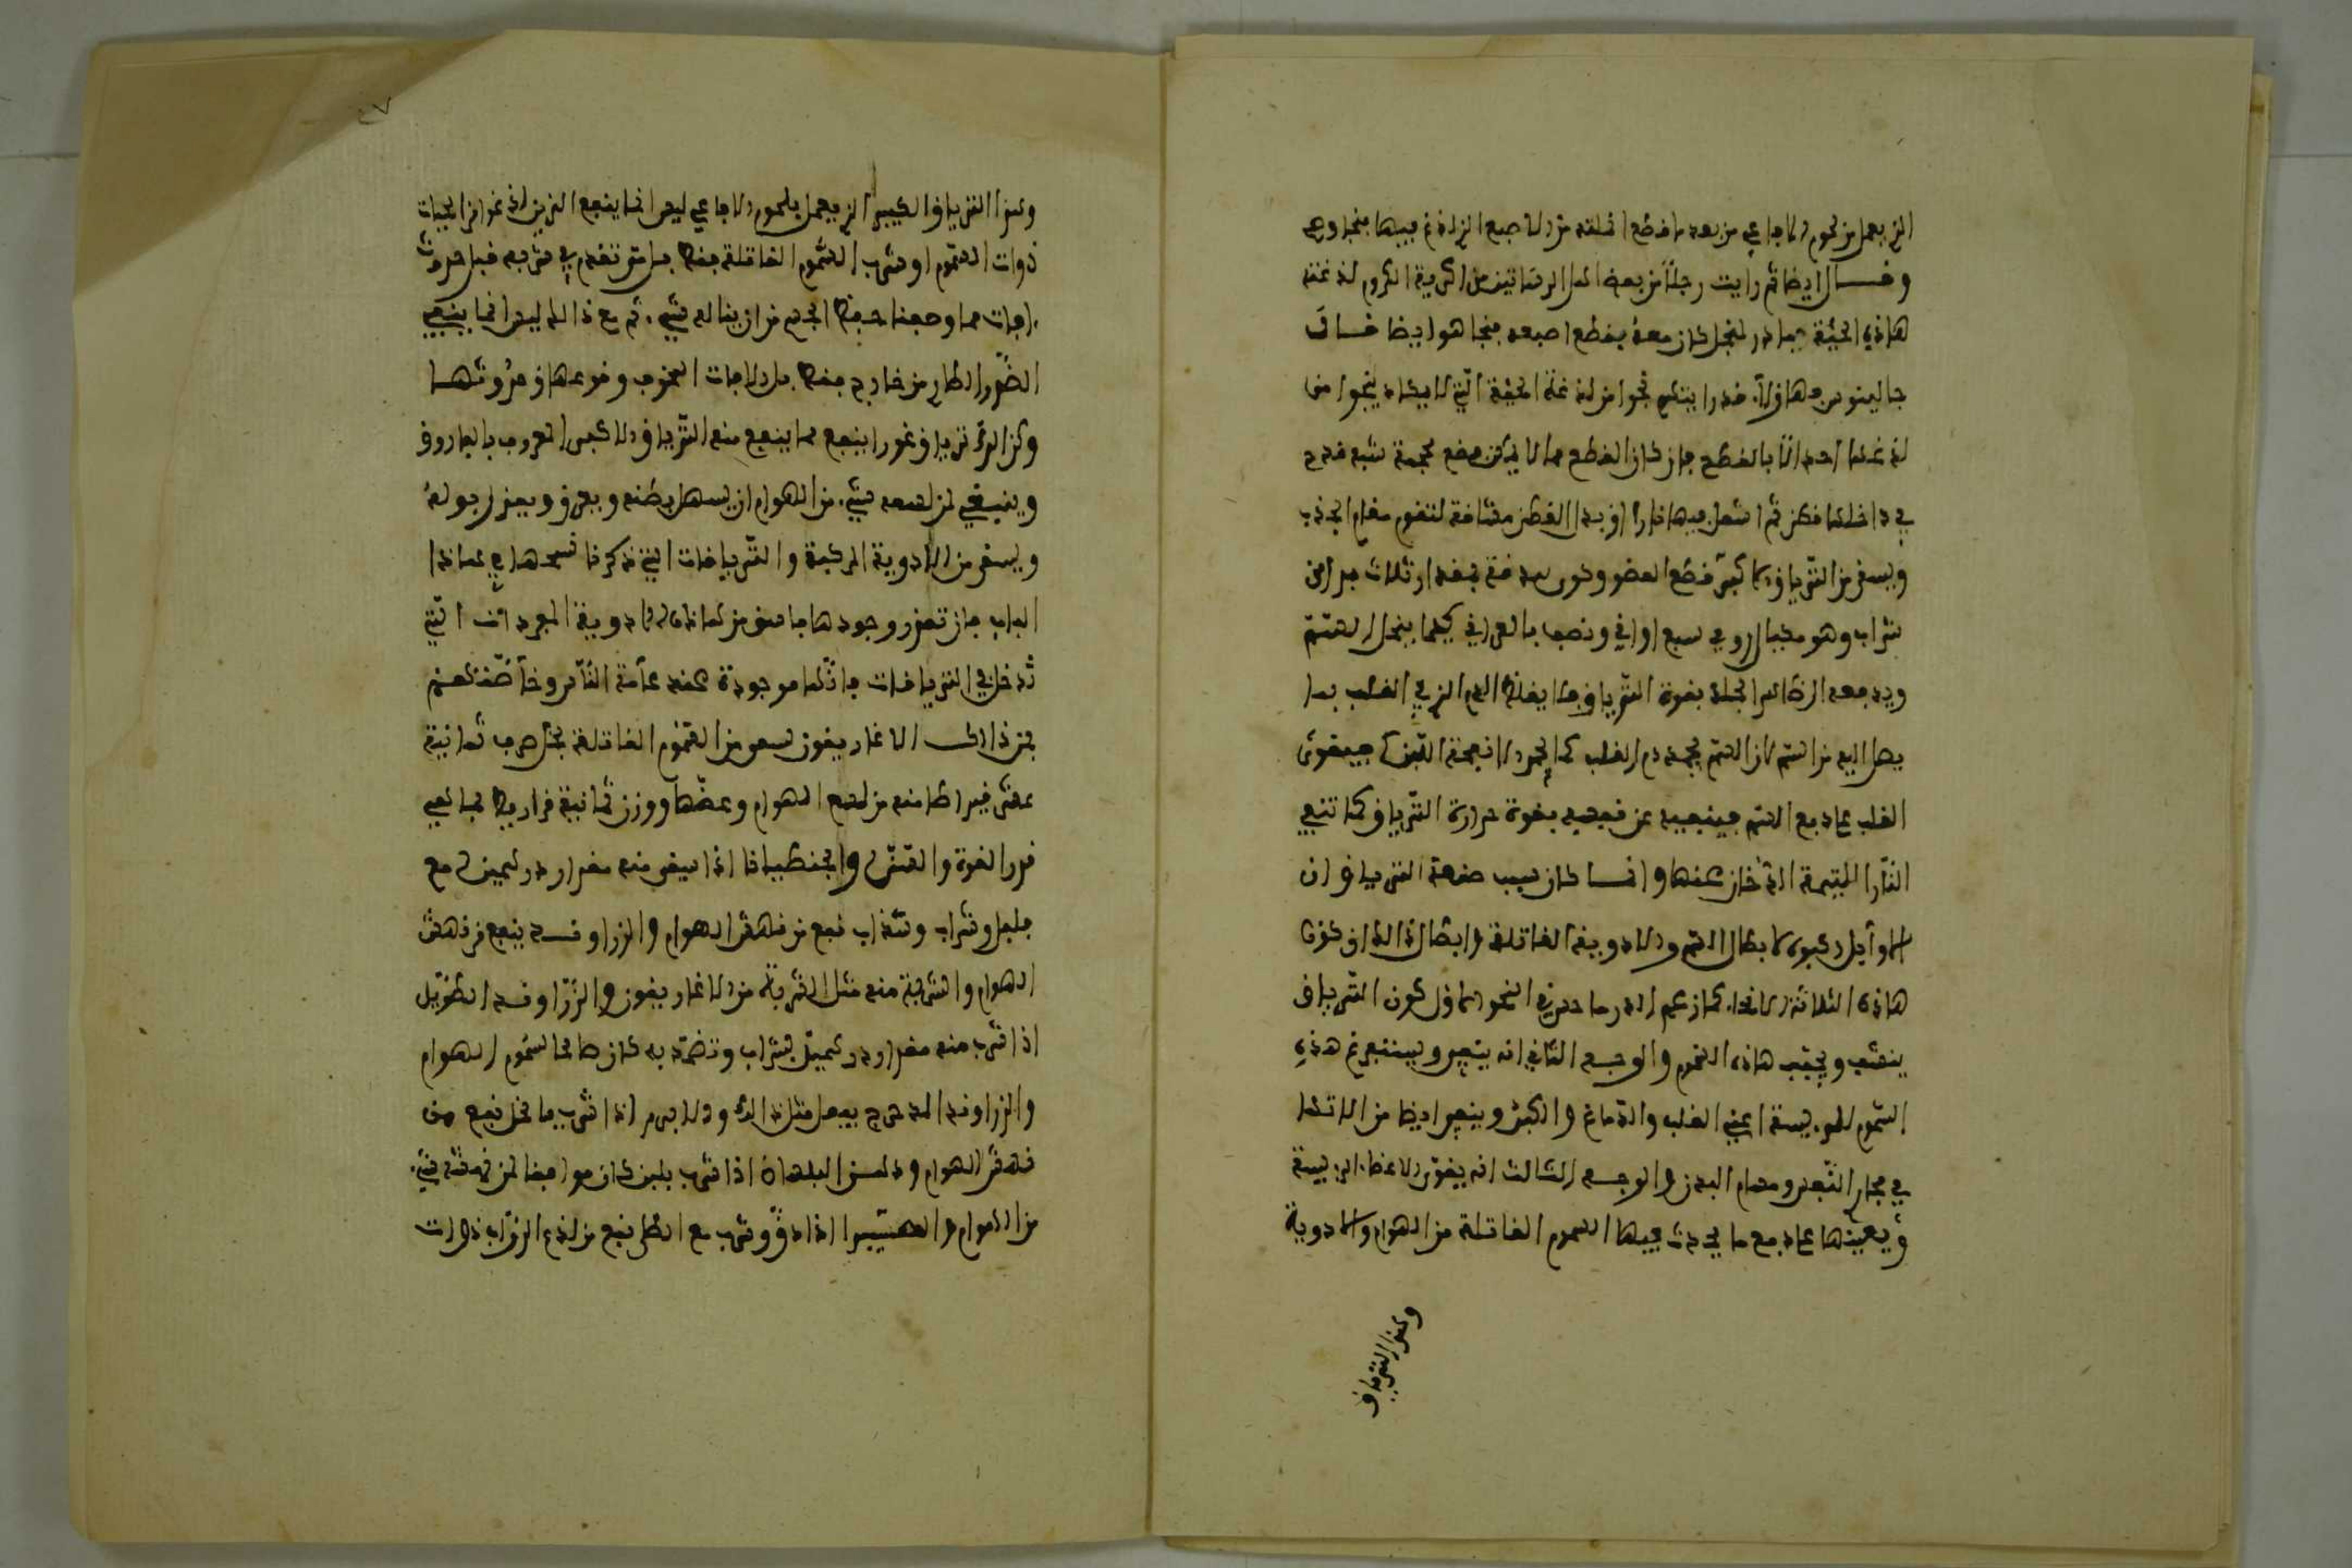 الذي يعمل من لحوم الافاعي من بعد ما قطع اقلته من الاصبع الذي لدغ فيها فنجا وهي
وقال ايضا ثم رايت رجلا من بعض اهل الرساتيق من اكرية الكروم لدغته
هاذه الحية فبادر لمنجل كان معه بقطع اصبعه فنجا هو ايضا قال
جالينوس فهاولاء قد رايتهم نجوا من لدغة الحية التي لا يكاد ينجوا من
لدغها احد الا بالقطع فان كان القطع مما لا يمكن فضع محجمة شبه قدح
في داخلها قطن ثم اشعل فيها نارا او بدل القطن مشاقة لتقوم مقام الجذب
ويسقى من الترياق الاكبر قطع العضو
شراب وهو مكيال رومي سبع اواقي ونصف بالعراقي كيما ينحل السم
ويدفعه الى ظاهر الجلد بقوة الترياق فلا يغلظ الدم الذي في القلب بما
يصل اليه من السم لان السم يجمد دم القلب كما يجمد الانفحة اللبن فيقوى
القلب على دفع السم فينفيه عن نفسه بقوة حرارة الترياق كما تنفي
النار الدخان عنها وانما كان سبب صنعة الترياق ان
الاوايل ركبوه لابطال السم والادوية القاتلة وابطال ذالك انه يكون
هاذه الثلاثة الانحاء كما زعم اندروماخس في النحو الاول يكون الترياق
ينشف ويجفف هاذه السموم والوجه الثاني انه ينفي ويستفرغ هذه
السموم الرئيسة اعني القلب والدماغ والكبد وينفي ايضا من الاتها
في مجاري النفس ومسام البدن والوجه الثالث انه يقوي الاعضاء الرئيسة
ويعينها على دفع ما يحدث فيها السموم القاتلة من الهوام والادوية
وهذا الترياق
٤٧
وهذا الترياق الكبير الذي يعمل بلحوم الافاعي ليس انما ينفع الذين لدغوا من الحيات
ذوات السموم او شرب السموم القاتلة فقط بل متى تقدم في شربه قبل حدوث
افات مما وصفنا حفظ الجسم من ان يناله شيء ثم مع ذالك ليس انما ينفي
الضرر الطاري من خارج فقط بل والافات العفونة وقوعها وحدوثها
وكذالك ترياق عزرا ينفع مما ينفع منه الترياق الاكبر المعروف بالفاروق
وينبغي لمن لسعه شيء من الهوام ان يسهل بطنه ويعرق ويغزر بوله
ويسقى من الادوية المركبة والترياقات التي ذكرنا نسخها في هاذا
الباب فان تعذر وجودها فاسق من هاذه الادوية المفردات التي
تدخل في الترياقات فانها موجودة عند عامة الناس وخاصتهم
فمن ذالك الاغاريقون يسقى من السموم القاتلة بخل حرف ثمانية
عشر قيراطا منه من لسع الهوام وعضها ووزن ثمانية قراريط فما لغي
قدر الفوة والقسط والجنطيانا اذا سقي منه مقدار درخمين مع
فلفل وشراب وشذاب نفع من نهش الهوام والزراوند ينفع من نهش
الهوام والشربة منه مثل الشربة من الاغاريقون والزراوند الطويل
اذا شرب منه مقدار درخمين بشراب وتضمد به كان صالحا لسموم الهوام
والزراوند المدحرج يفعل مثل ذالك اذا شرب بالخل نفع من
نهش الهوام ودهن البلسان اذا شرب بلبن كان موافقا لمن نهشه شيء
من الهوام اذا دق وشرب مع الخل نفع من لدغ الزواب ذوات